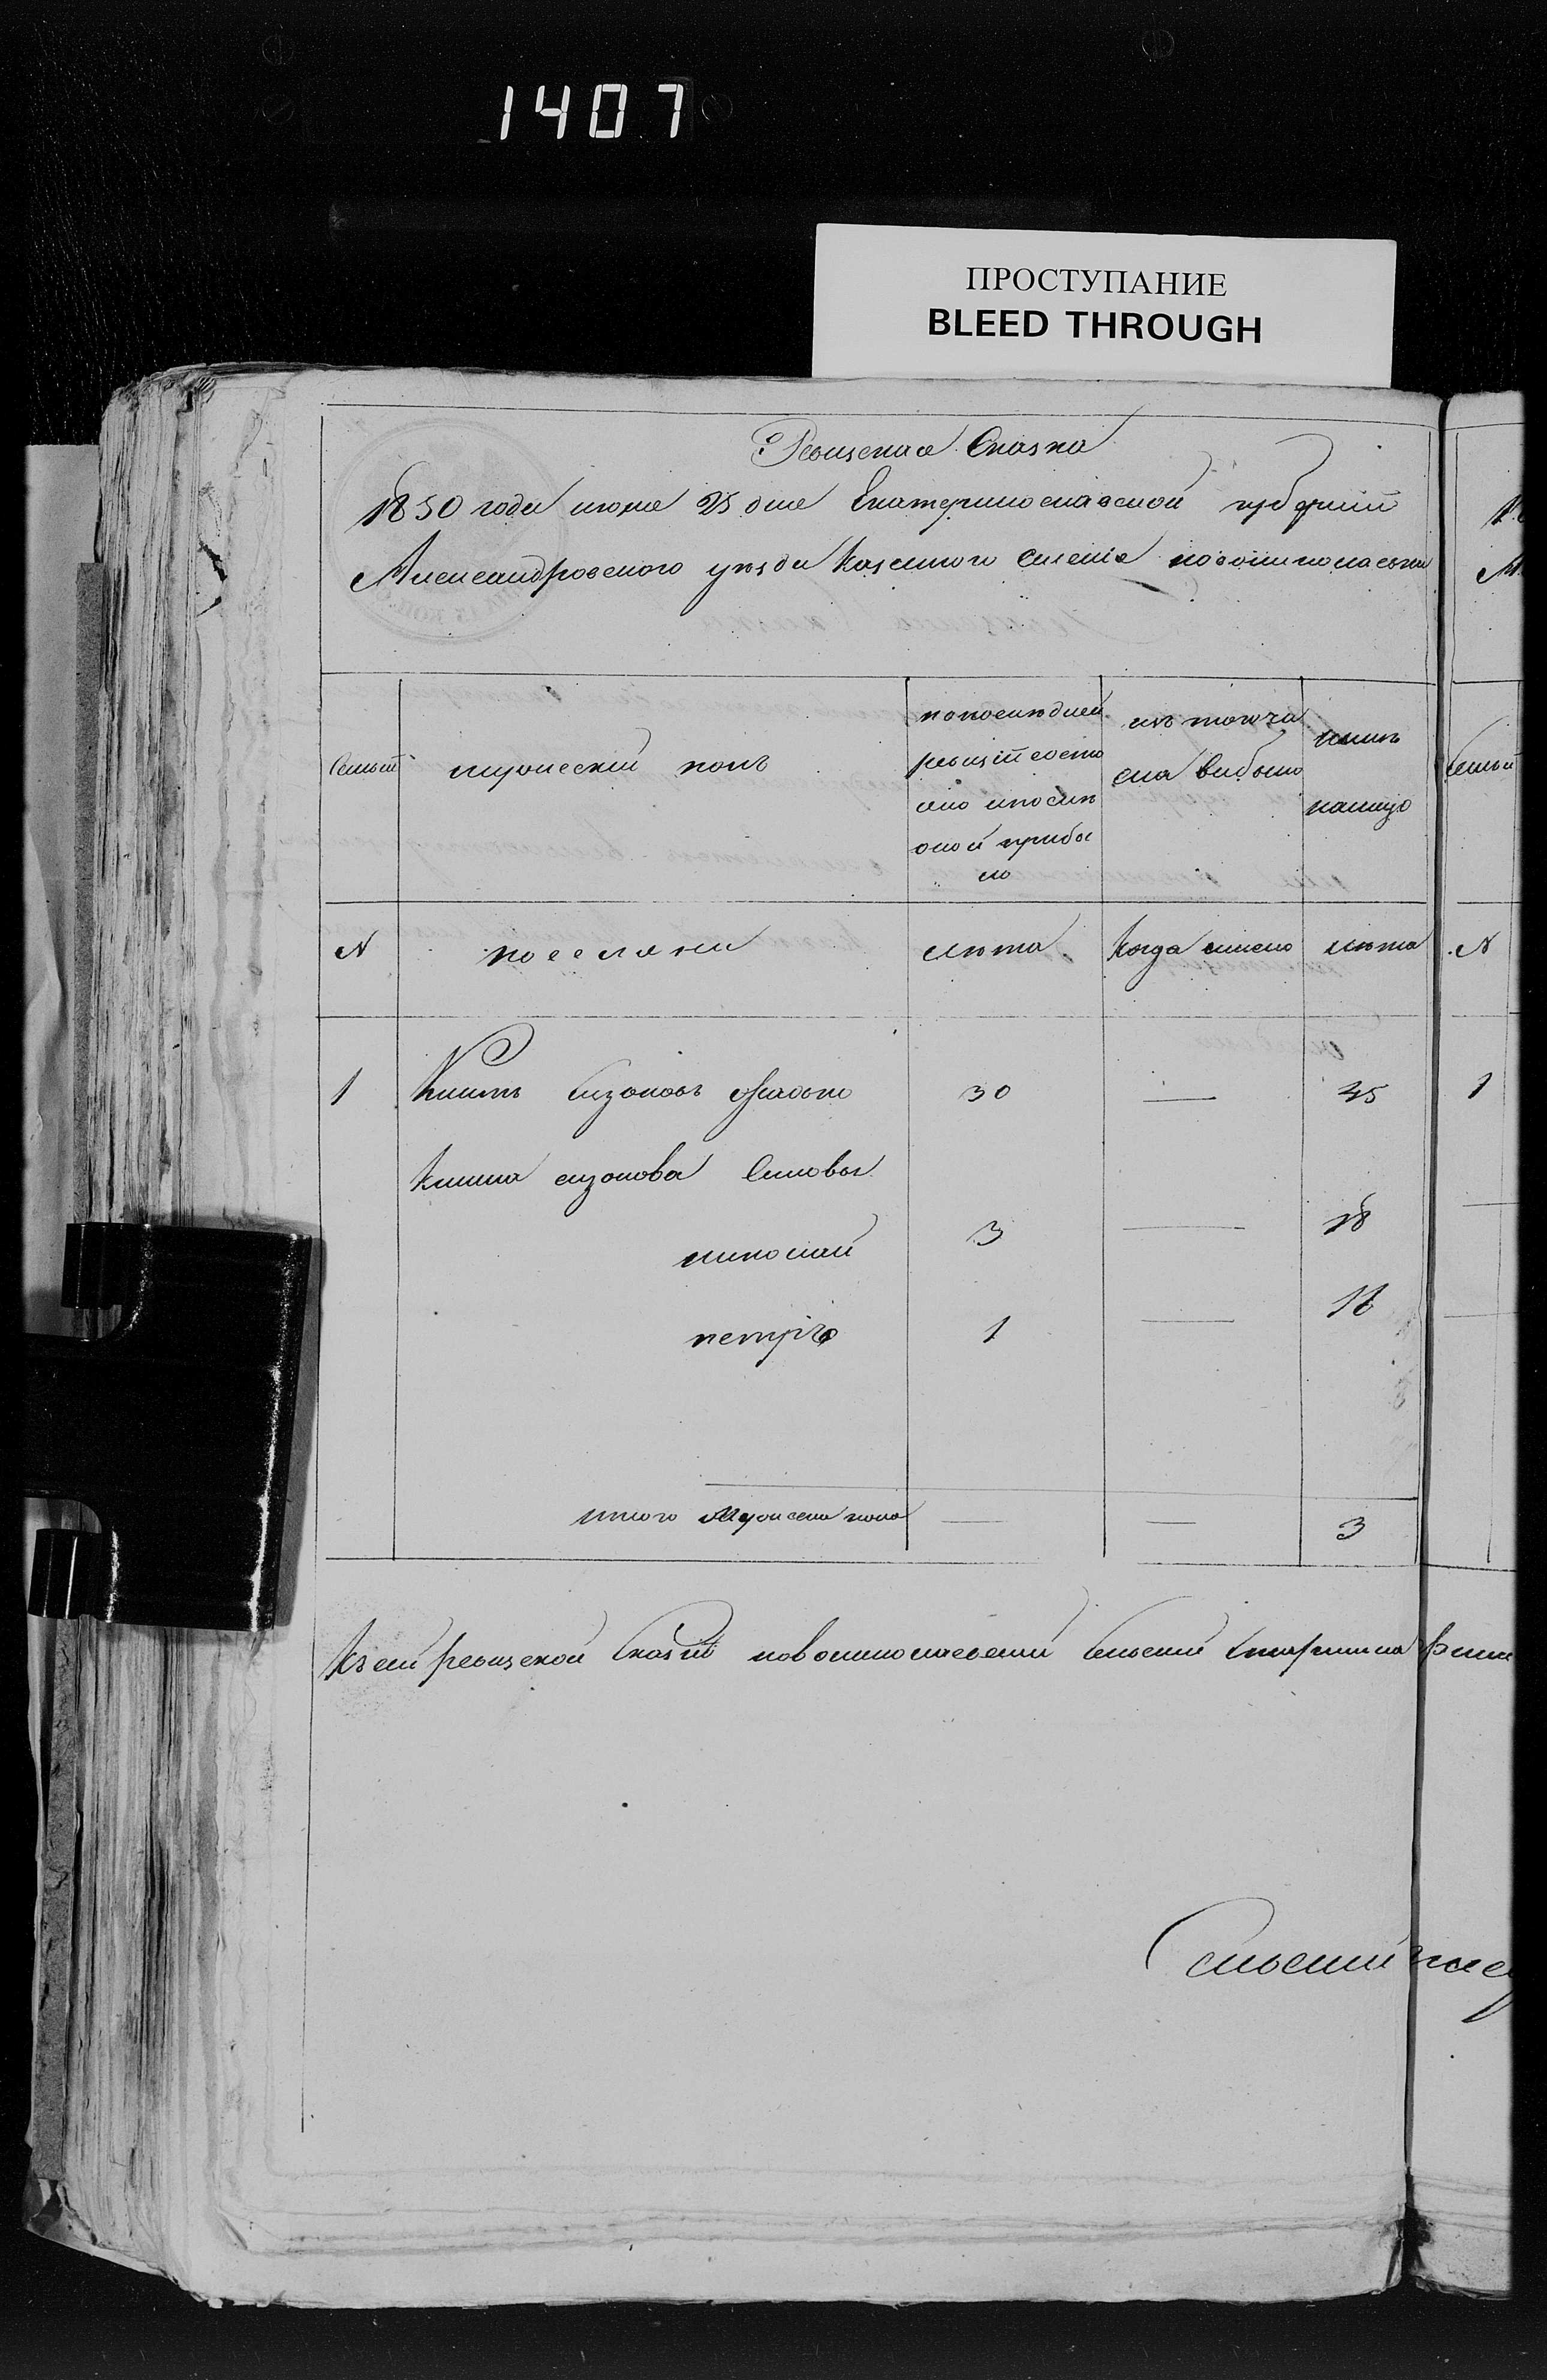 1407
ПРОСТУПАНИЕ
BLEED THROUGH
Ревизская Сказка
1850 года июня 25 дня Екатеринославской губернии
Александровского уезда Казенного Селения новониколаевки
Семьи
мужеский полъ
по последней
ревизіи состо
яло и после
оной прибы
ло
изъ того чи
сла выбыло
ныне
налицо
N
поселяни
лета
когда имено
лета
1 Климъ Сизоновъ 30 — 45
Клима сизонова Сыновья
николай 3 — 18
петръ 1 — 16
итого Мужеска пола — — 3
К сей ревизской Сказки новониколаевский Сельский Старшина
Сельский